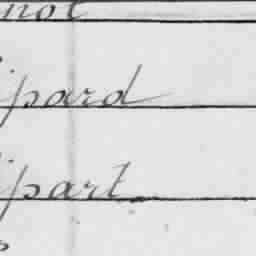 not
ipard
ipart